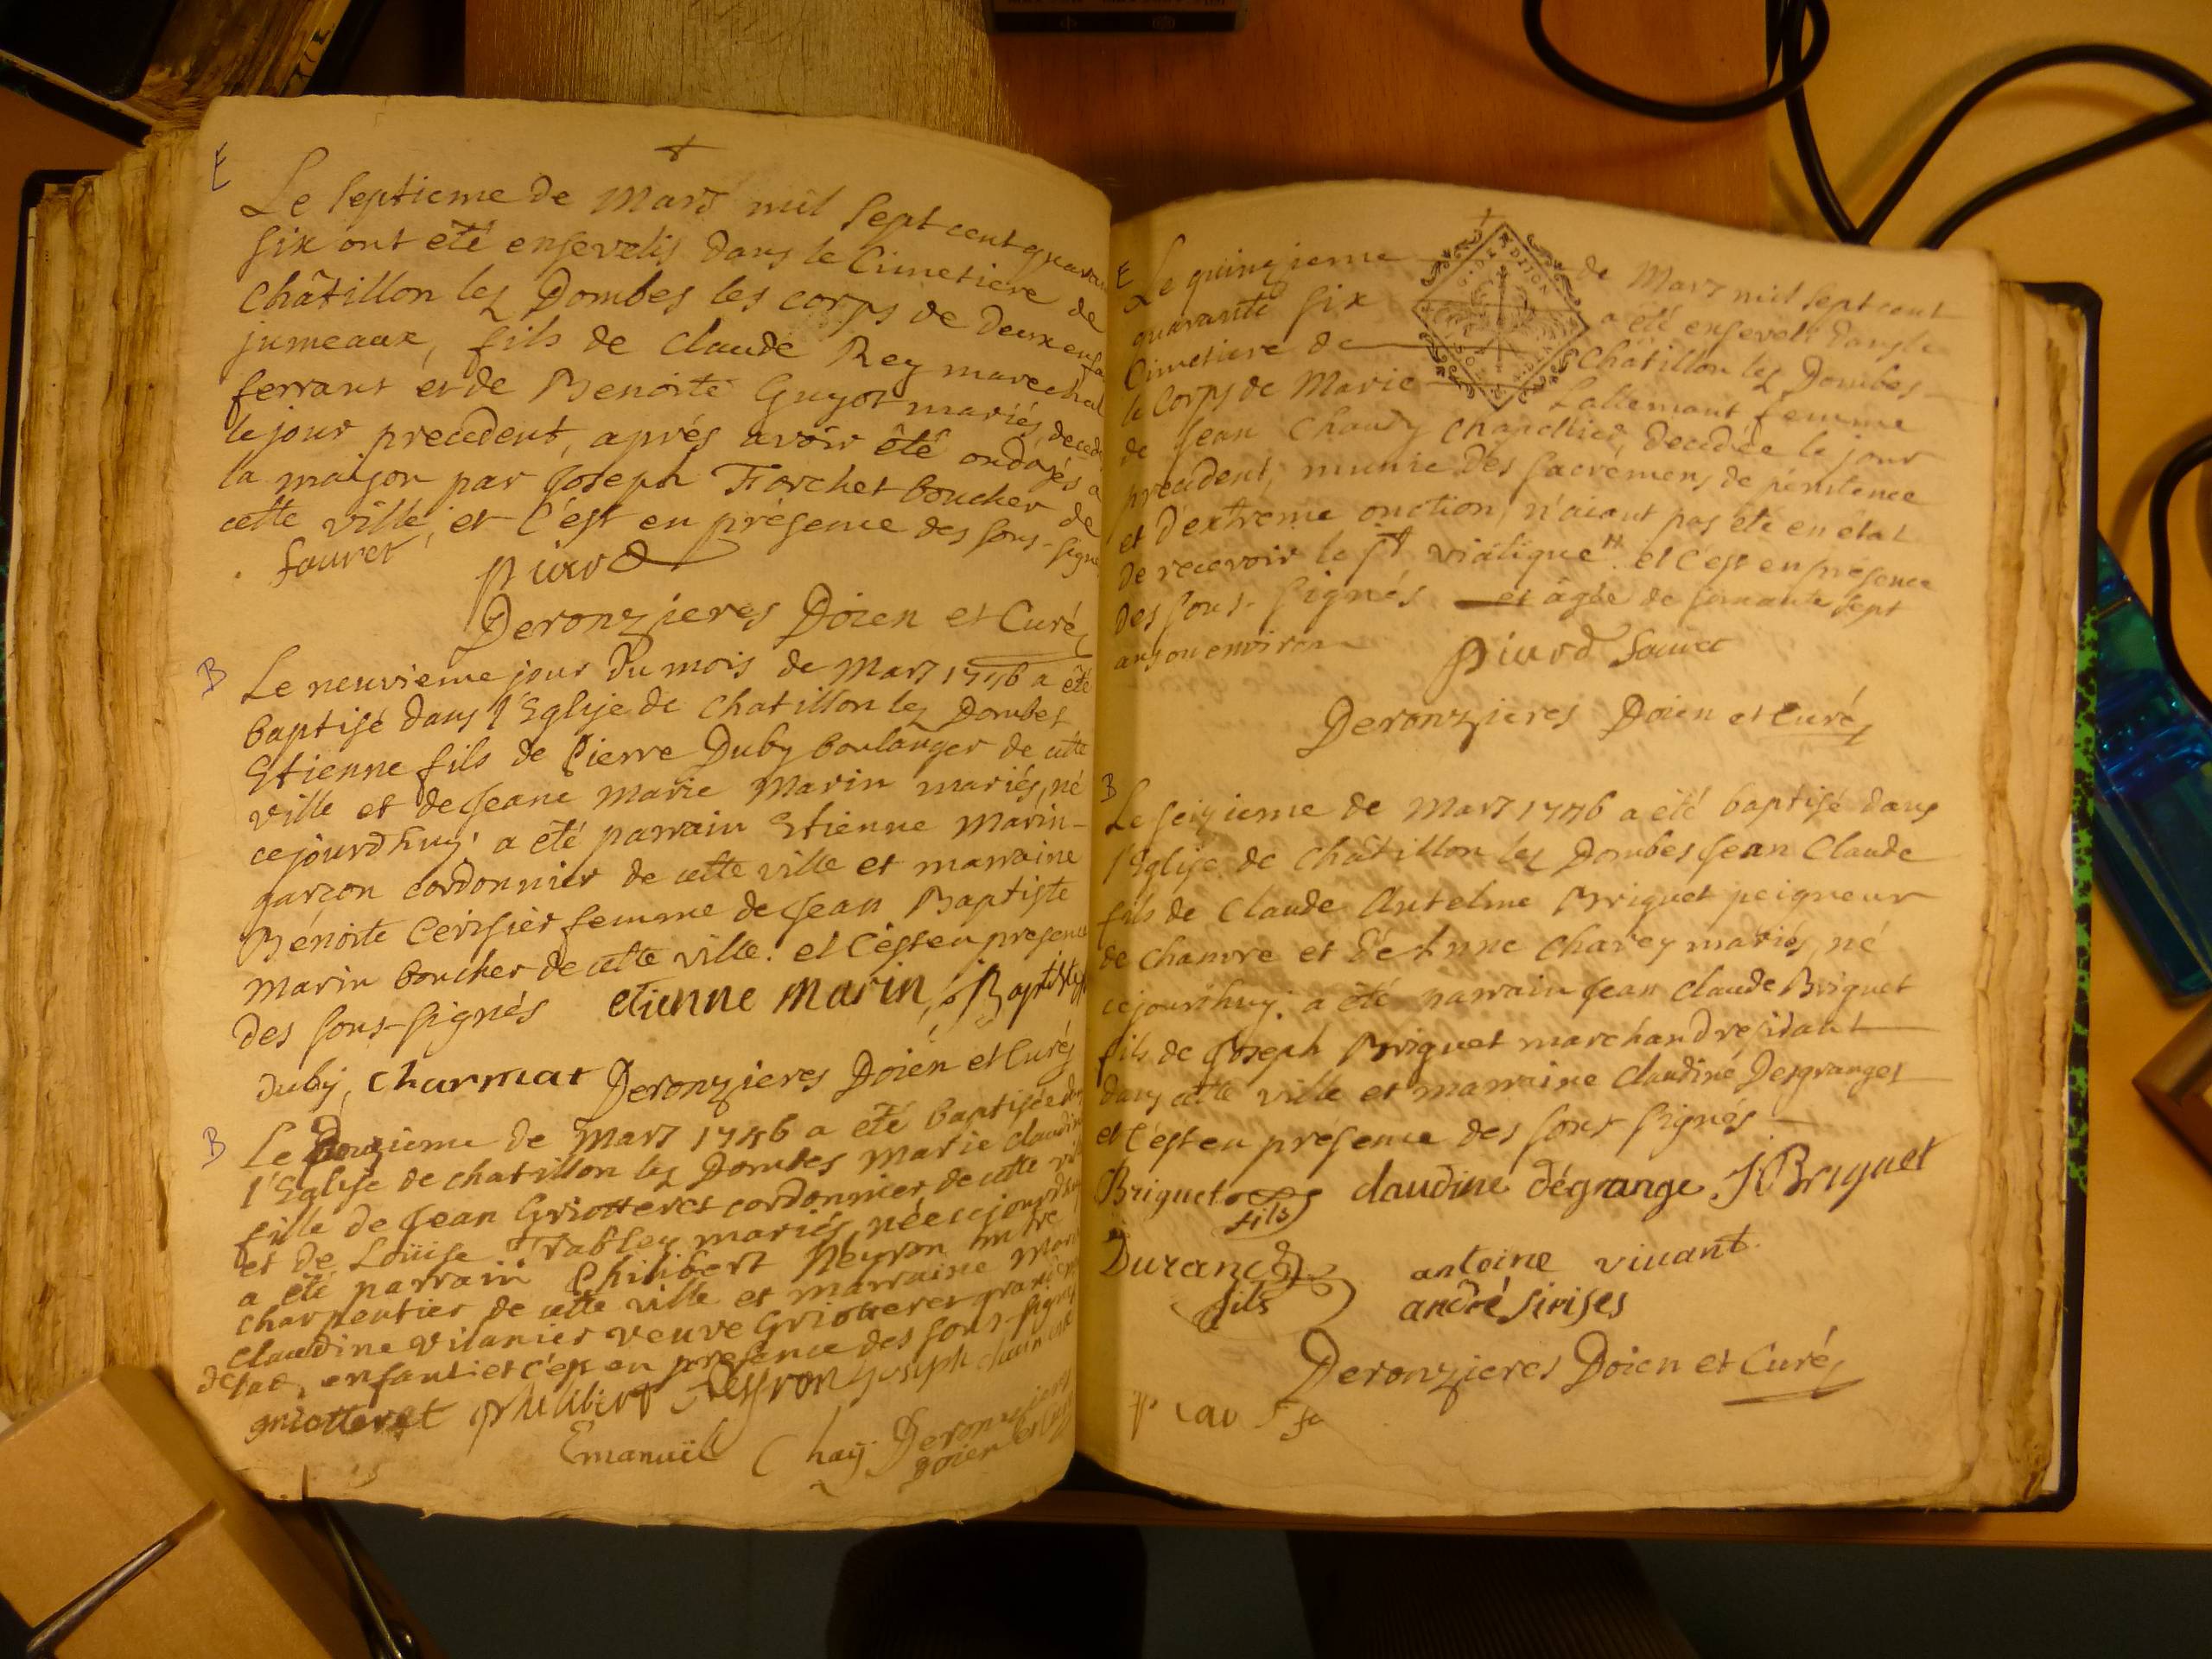 E
Le septieme de Mars mil sept cent quaran
six ont été ensevelis dans le Cimetiere de
Châtillon les Dombes les corps de deux enfa
jumeaux, fils de claude Rey marechal
ferrant et de Benoite Guyot mariés, deced
le jour precedent, aprés avoir êté ondoyés a
la maison par Joseph Forchet boucher de
cette ville, et c'est en présence des sous-signe
fauret piard
Deronzieres Doien et Curé
B
Le neuvieme jour du mois de Mars 1746 a êté
baptisé dans l'Eglise de Chatillon les Dombes
Etienne fils de Pierre Duby boulanger de cette
ville et de Jeane Marie Marin mariés, né
cejourdhuy. a eté parrain Etienne Marin-
garçon cordonnier de cette ville et marraine
Benoite Cerisier femme de Jean Baptiste
Marin boucher de cette ville. et c'est en presence
des sous-signés etienne marin, Baptiste
duby, charmat Deronzieres Doien et Curé
B
Le douzieme de Mars 1746 a eté baptisée
l'Eglise de chatillon les Dombes Marie claudin
fille de Jean Griotteret cordonnier de cette vil
et de Loüise Trabley mariés, née cejourdhu
a été parrain Philibert Neyron
charpentier de cette ville et marraine Mari
claudine vilanier veuve Griotteret
de enfant et c'est en presence des sous-signe
griotteret philibert Neyron Joseph
Emanuël Chaij Deronzieres
Doien et Curé
E
Le quinzieme de Mars mil sept cent
quarante six a été enseveli dans le
Cimetiere de Châtillon les Dombes
le corps de Marie Lallemant femme
de Jean Chaudy chapellier, decedée le jour
precedent, munie des sacremens de pénitence
et d'extreme onction, n'aiant pas eté en état
de recevoir le st viatique et c'est en présence
des sous-signés et agée de soixante sept
ans ou environ
piard fauret
Deronzieres Doien et Curé
B
Le seizieme de Mars 1746 a eté baptisé dans
l'Eglise de Châtillon les Dombes Jean Claude
fils de Claude Antelme Briquet peigneur
de chanvre et de Anne Charey mariés, né
cejourdhuy. a été parrain Jean claude Briquet
fils de Joseph Briquet marchand residant
dans cette ville et marraine claudine Desgranges
et c'est en présence des sous signés
Briquet fils claudine dégrange J Briquet
Durand fils antoine vivant
andré sirises
Deronzieres Doien et Curé